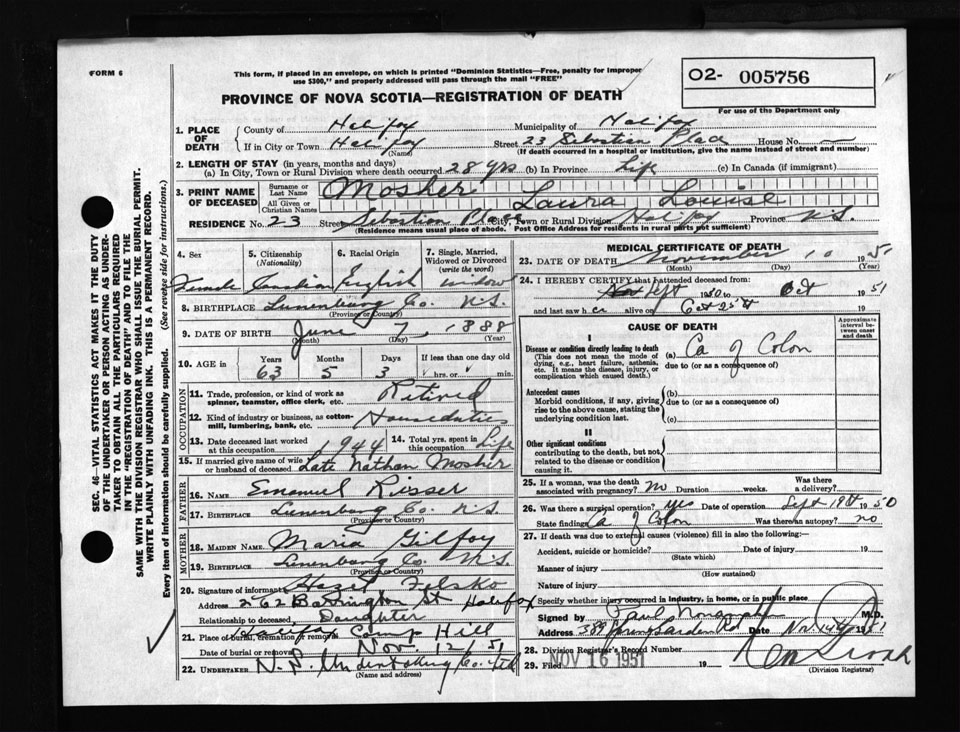 FORM 6
This form, if placed in an envelope, on which is printed "Dominion Statistics—Free, penalty for improper
use $300," and properly addressed will pass through the mail "FREE"
PROVINCE OF NOVA SCOTIA—REGISTRATION OF DEATH
O2- 005756
For use of the Department only
SEC. 46—VITAL STATISTICS ACT MAKES IT THE DUTY
OF THE UNDERTAKER OR PERSON ACTING AS UNDER-
TAKER TO OBTAIN ALL THE PARTICULARS REQUIRED
IN THE "REGISTRATION OF DEATH" AND TO FILE THE
SAME WITH THE DIVISION REGISTRAR WHO SHALL ISSUE THE BURIAL PERMIT.
WRITE PLAINLY WITH UNFADING INK. THIS IS A PERMANENT RECORD.
Every item of information should be carefully supplied. (See reverse side for instructions.)
1. PLACE OF DEATH
County of Halifax Municipality of Halifax
If in City or Town Halifax (Name) Street 23 Sebastian Place House No.
(If death occurred in a hospital or institution, give the name instead of street and number)
2. LENGTH OF STAY (in years, months and days)
(a) In City, Town or Rural Division where death occurred 28 yrs (b) In Province Life (c) In Canada (if immigrant)
3. PRINT NAME OF DECEASED
Surname or Last Name Mosher
All Given or Christian Names Laura Louise
RESIDENCE No. 23 Street Sebastian Place City, Town or Rural Division Halifax Province N.S.
(Residence means usual place of abode. Post Office Address for residents in rural parts not sufficient)
4. Sex 5. Citizenship (Nationality) 6. Racial Origin 7. Single, Married, Widowed or Divorced (write the word)
Female Canadian English widow
8. BIRTHPLACE Lunenburg Co. N.S.
(Province or Country)
9. DATE OF BIRTH June 7, 1888
(Month) (Day) (Year)
10. AGE in Years Months Days If less than one day
63 5 3 hrs. or min.
OCCUPATION
11. Trade, profession, or kind of work as spinner, teamster, office clerk, etc. Retired
12. Kind of industry or business, as cotton-mill, lumbering, bank, etc. Houseduties
13. Date deceased last worked at this occupation 1944 14. Total yrs. spent in this occupation Life
15. If married give name of wife or husband of deceased Late Nathan Mosher
FATHER
16. NAME Emanuel Risser
17. BIRTHPLACE Lunenburg Co. N.S.
(Province or Country)
MOTHER
18. MAIDEN NAME Maria Gilfoy
19. BIRTHPLACE Lunenburg Co. N.S.
(Province or Country)
20. Signature of informant Hazel Felsko
Address 262 Barrington St Halifax
Relationship to deceased Daughter
21. Place of burial, cremation or removal Halifax Camp Hill
Date of burial or removal Nov. 12/51
22. UNDERTAKER N.S. Undertaking Co. Ltd
(Name and address)
MEDICAL CERTIFICATE OF DEATH
23. DATE OF DEATH November 10 195
(Month) (Day) (Year)
24. I HEREBY CERTIFY that I attended deceased from:
Sept 1950 to Oct 1951
and last saw her alive on Oct 25th
CAUSE OF DEATH
Approximate interval between onset and death
I
Disease or condition directly leading to death
(This does not mean the mode of dying, e.g., heart failure, asthenia, etc. It means the disease, injury, or complication which caused death.)
(a) Ca of Colon
due to (or as a consequence of)
Antecedent causes
Morbid conditions, if any, giving rise to the above cause, stating the underlying condition last.
(b)
due to (or as a consequence of)
(c)
II
Other significant conditions
contributing to the death, but not related to the disease or condition causing it.
25. If a woman, was the death associated with pregnancy? no Duration weeks. Was there a delivery?
26. Was there surgical operation? yes Date of operation Sept 18th 1950
State findings Ca of Colon Was there an autopsy? no
27. If death was due to external causes (violence) fill in also the following:
Accident, suicide or homicide? Date of injury 19
(State which)
Manner of injury
(How sustained)
Nature of injury
Specify whether injury occurred in industry, in home, or in public place
Signed by Paul M.D.
Address 389 Spring Garden Rd Date Nov 14th 1951
28. Division Registrar's Record Number
29. Filed NOV 16 1951 19
(Division Registrar)